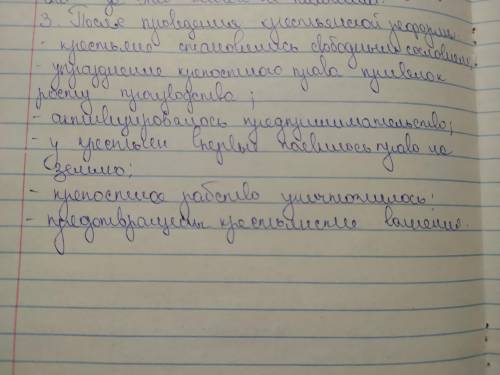 3. После проведения крестьянской реформы
- крестьяне становились свободным сословием;
- упразднение крепостного права привлек
росту производства;
- активизировалось предпринимательство;
- у крестьян впервые появилось право на
землю;
- крепостное рабство уничтожилось;
- предотвращены крестьянские волнения.